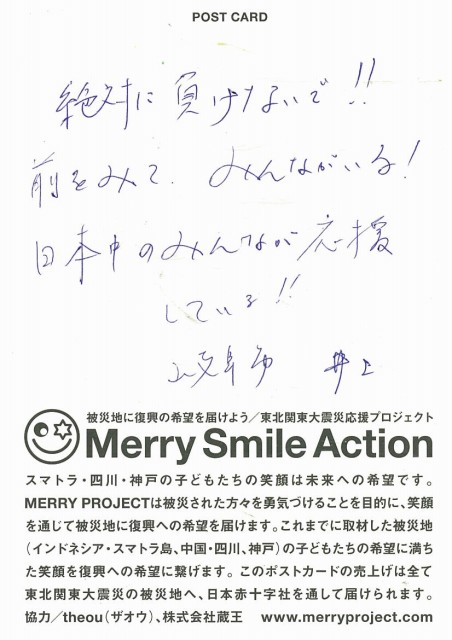 POST CARD
絶対に負けないで!!
前をみて、みんながいる!
日本中のみんなが応援
している!!
岐阜市 井上
被災地に復興の希望を届けよう/東北関東大震災応援プロジェクト
Merry Smile Action
スマトラ・四川・神戸の子どもたちの笑顔は未来への希望です。
MERRY PROJECTは被災された方々を勇気づけることを目的に、笑顔
を通じて被災地に復興への希望を届けます。これまでに取材した被災地
(インドネシア・スマトラ島、中国・四川、神戸)の子どもたちの希望に満ち
た笑顔を復興への希望に繋げます。このポストカードの売上げは全て
東北関東大震災の被災地へ、日本赤十字社を通して届けられます。
協力/theou(ザオウ)、株式会社蔵王 www.merryproject.com